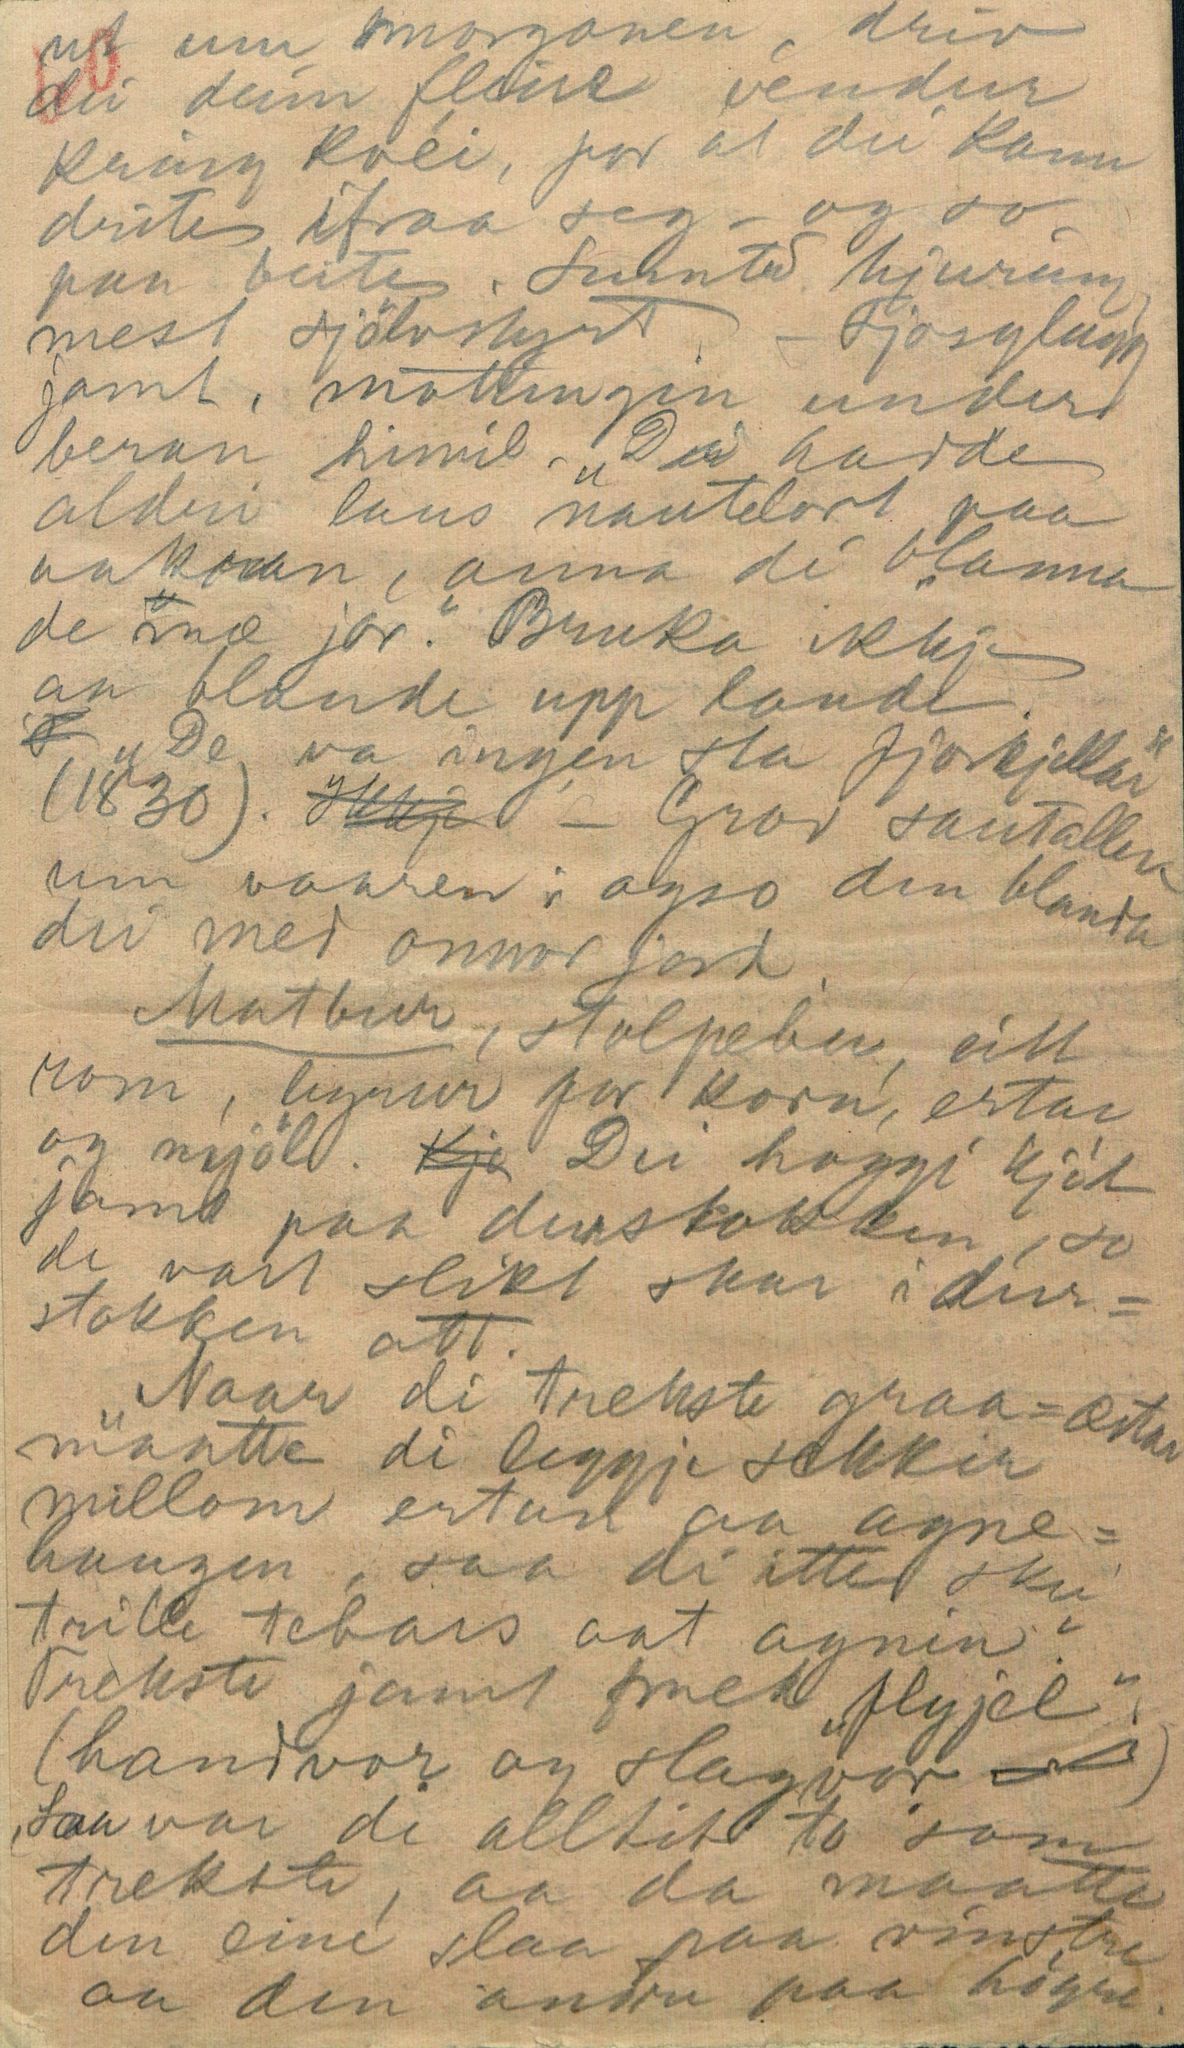 60
ut um morganen, driv
dei deim fleire vendur
kring kvei, for at dei kann
drite ifraa seg - og so
paa beite. Sumta hjuring,
mest sjölvstyrt - Fjosglugg
jamt, möttingin under
beran himil. "Dei hadde
alderi laus nautelort paa
aakran, anna di blanna
de mæ jor." Bruka ikkje
aa blande upp lande.
"De va ingen sta fjoskjellar"
(1830). - Grov sautallen
um vaaren; ogso den blanda
dei med onnor jord.
Matbur, stolpebu, eitt
rom, byrur for korn, ertar
og mjöl. Dei hoggi kjöt
jamt paa durstokken, so
de vart slikt skar i dur=
stokken att.
"Naar di trekste graa=ærtar
maatte di leggje sekkir
millom ertan aa agne=
haugen, saa di itte sku
trille tebars aat agnin."
Trekste jamt med "flygjel"
(handvor og slagvor)
"Saa var di alltid to som
trekste, aa da maatte
den eine slaa paa vinstre
aa den andre paa högre.